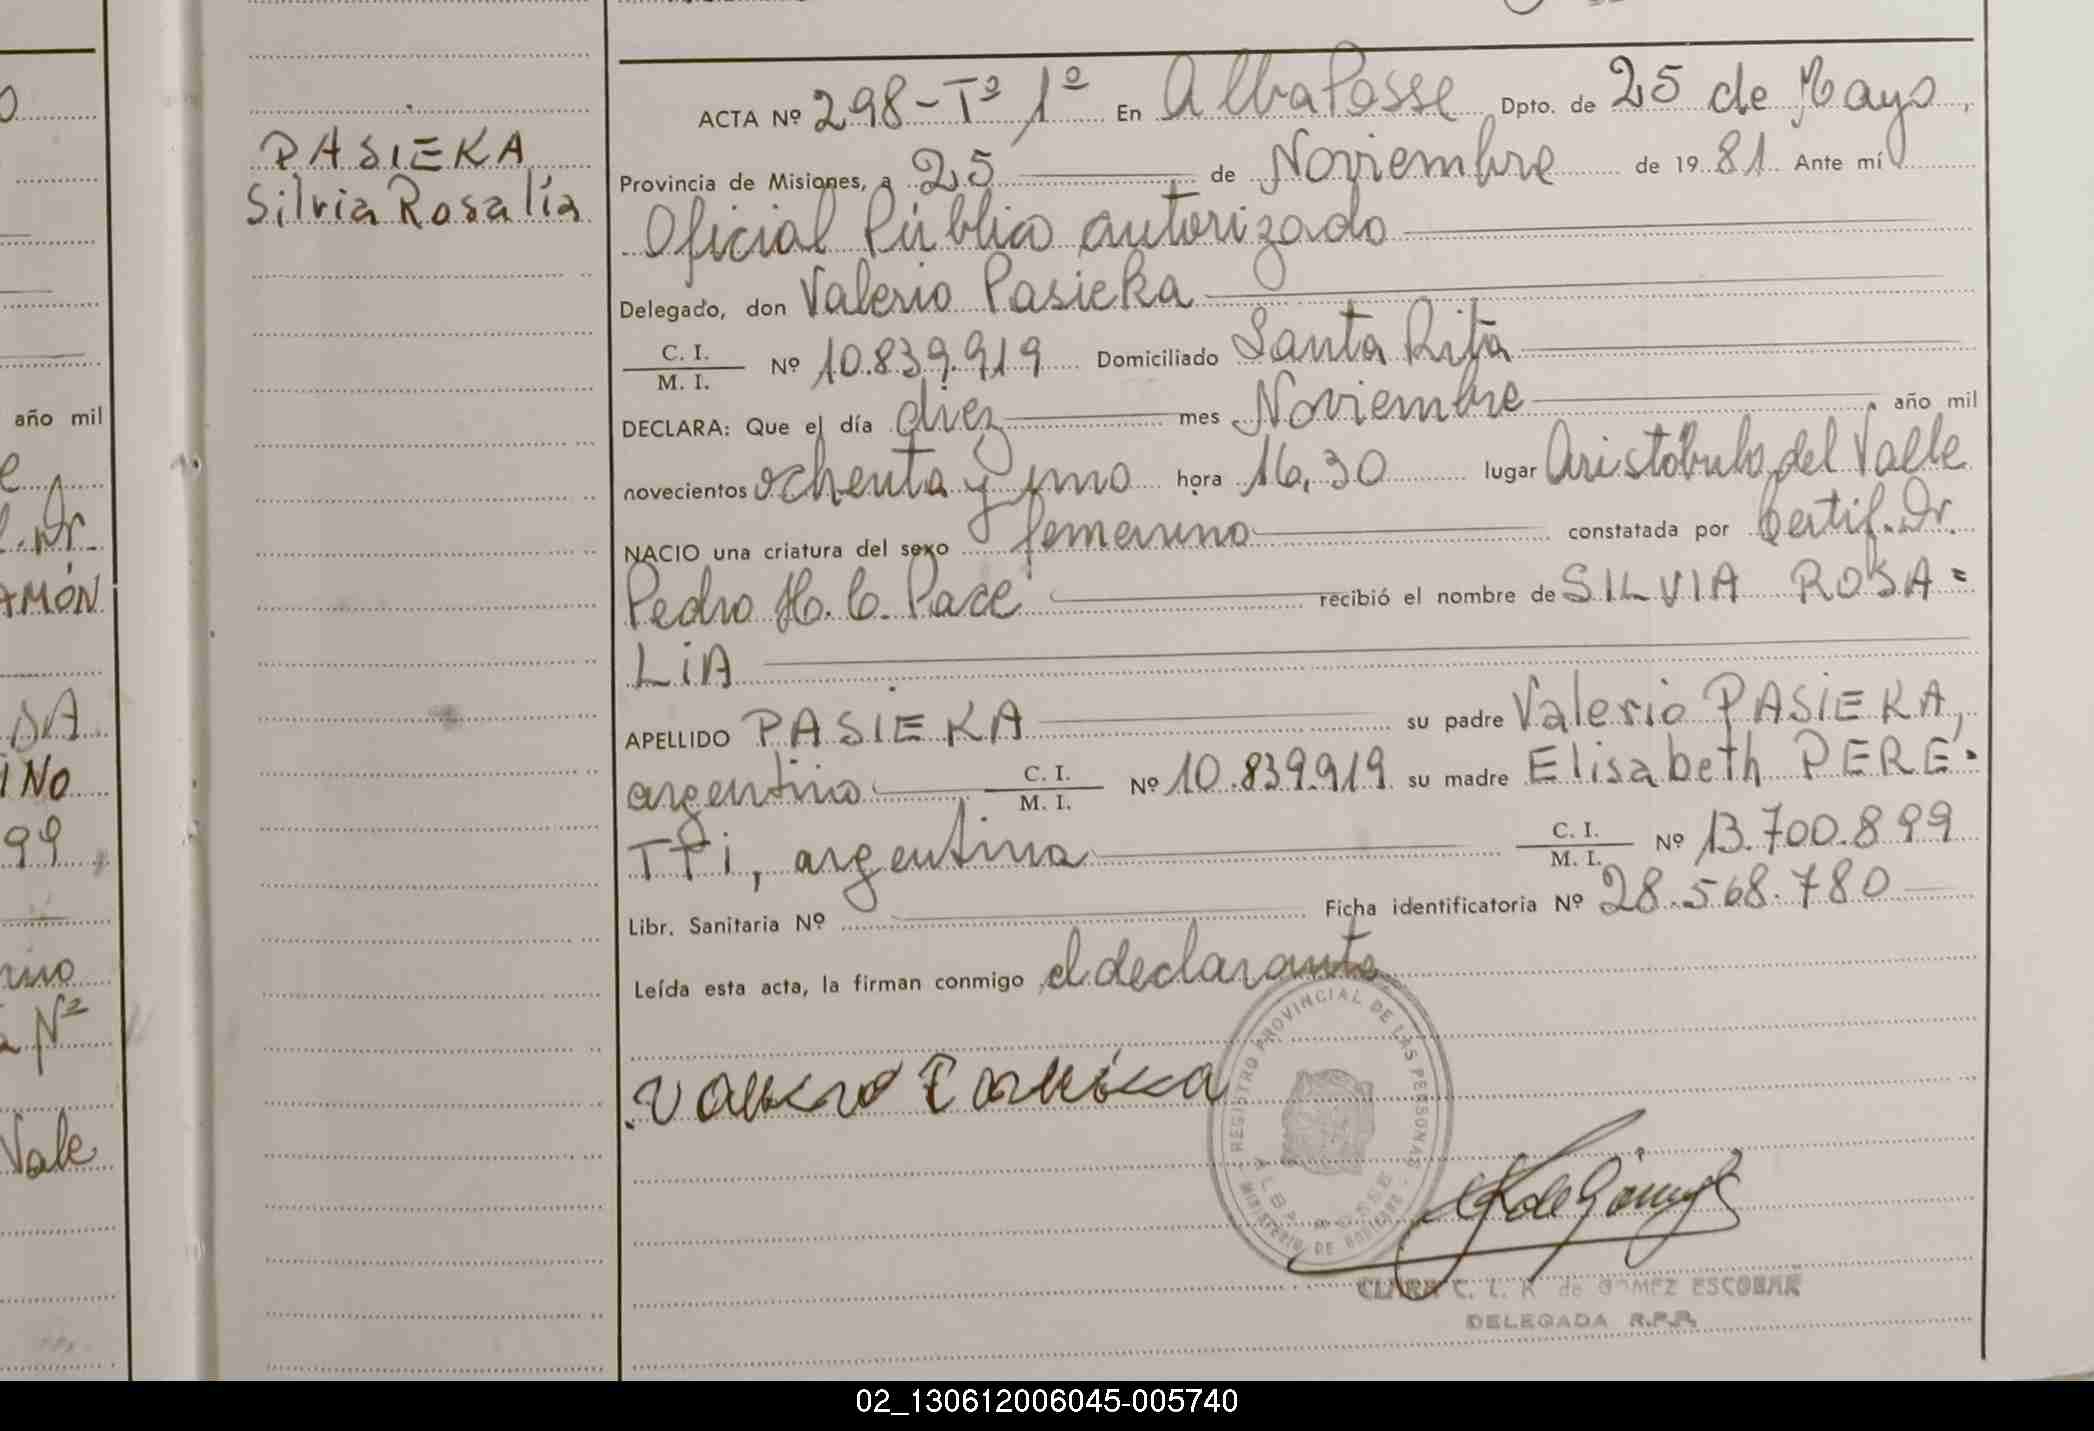 PASIEKA
Silvia Rosalía
ACTA Nº 298-Tº 1º En Alba Posse Dpto. de 25 de Mayo,
Provincia de Misiones, a 25 de Noviembre de 1981. Ante mí
Oficial Público autorizado
Delegado, don Valerio Pasieka
C. I.
M. I.
Nº 10.839.919 Domiciliado Santa Rita
DECLARA: Que el día diez mes Noviembre año mil
novecientos ochenta y uno hora 16,30 lugar Aristóbulo del Valle
NACIO una criatura del sexo femenino constatada por Certif. Dr.
Pedro H. C. Pace recibió el nombre de SILVIA ROSA=
LiA
APELLIDO PASiEKA su padre Valerio PASiEKA,
argentino C. I.
M. I.
Nº 10.839.919 su madre Elisabeth PERE-
TTi, argentina C. I.
M. I.
Nº 13.700.899
Libr. Sanitaria Nº Ficha identificatoria Nº 28.568.780
Leída esta acta, la firman conmigo el declarante
REGISTRO PROVINCIAL DE LAS PERSONAS
ALBA POSSE
MINISTERIO DE GOBIERNO
CLARA C. L. K de GOMEZ ESCOBAR
DELEGADA R.P.P.
año mil
AMÓN
iNO
99
Nº
Vale
02_130612006045-005740